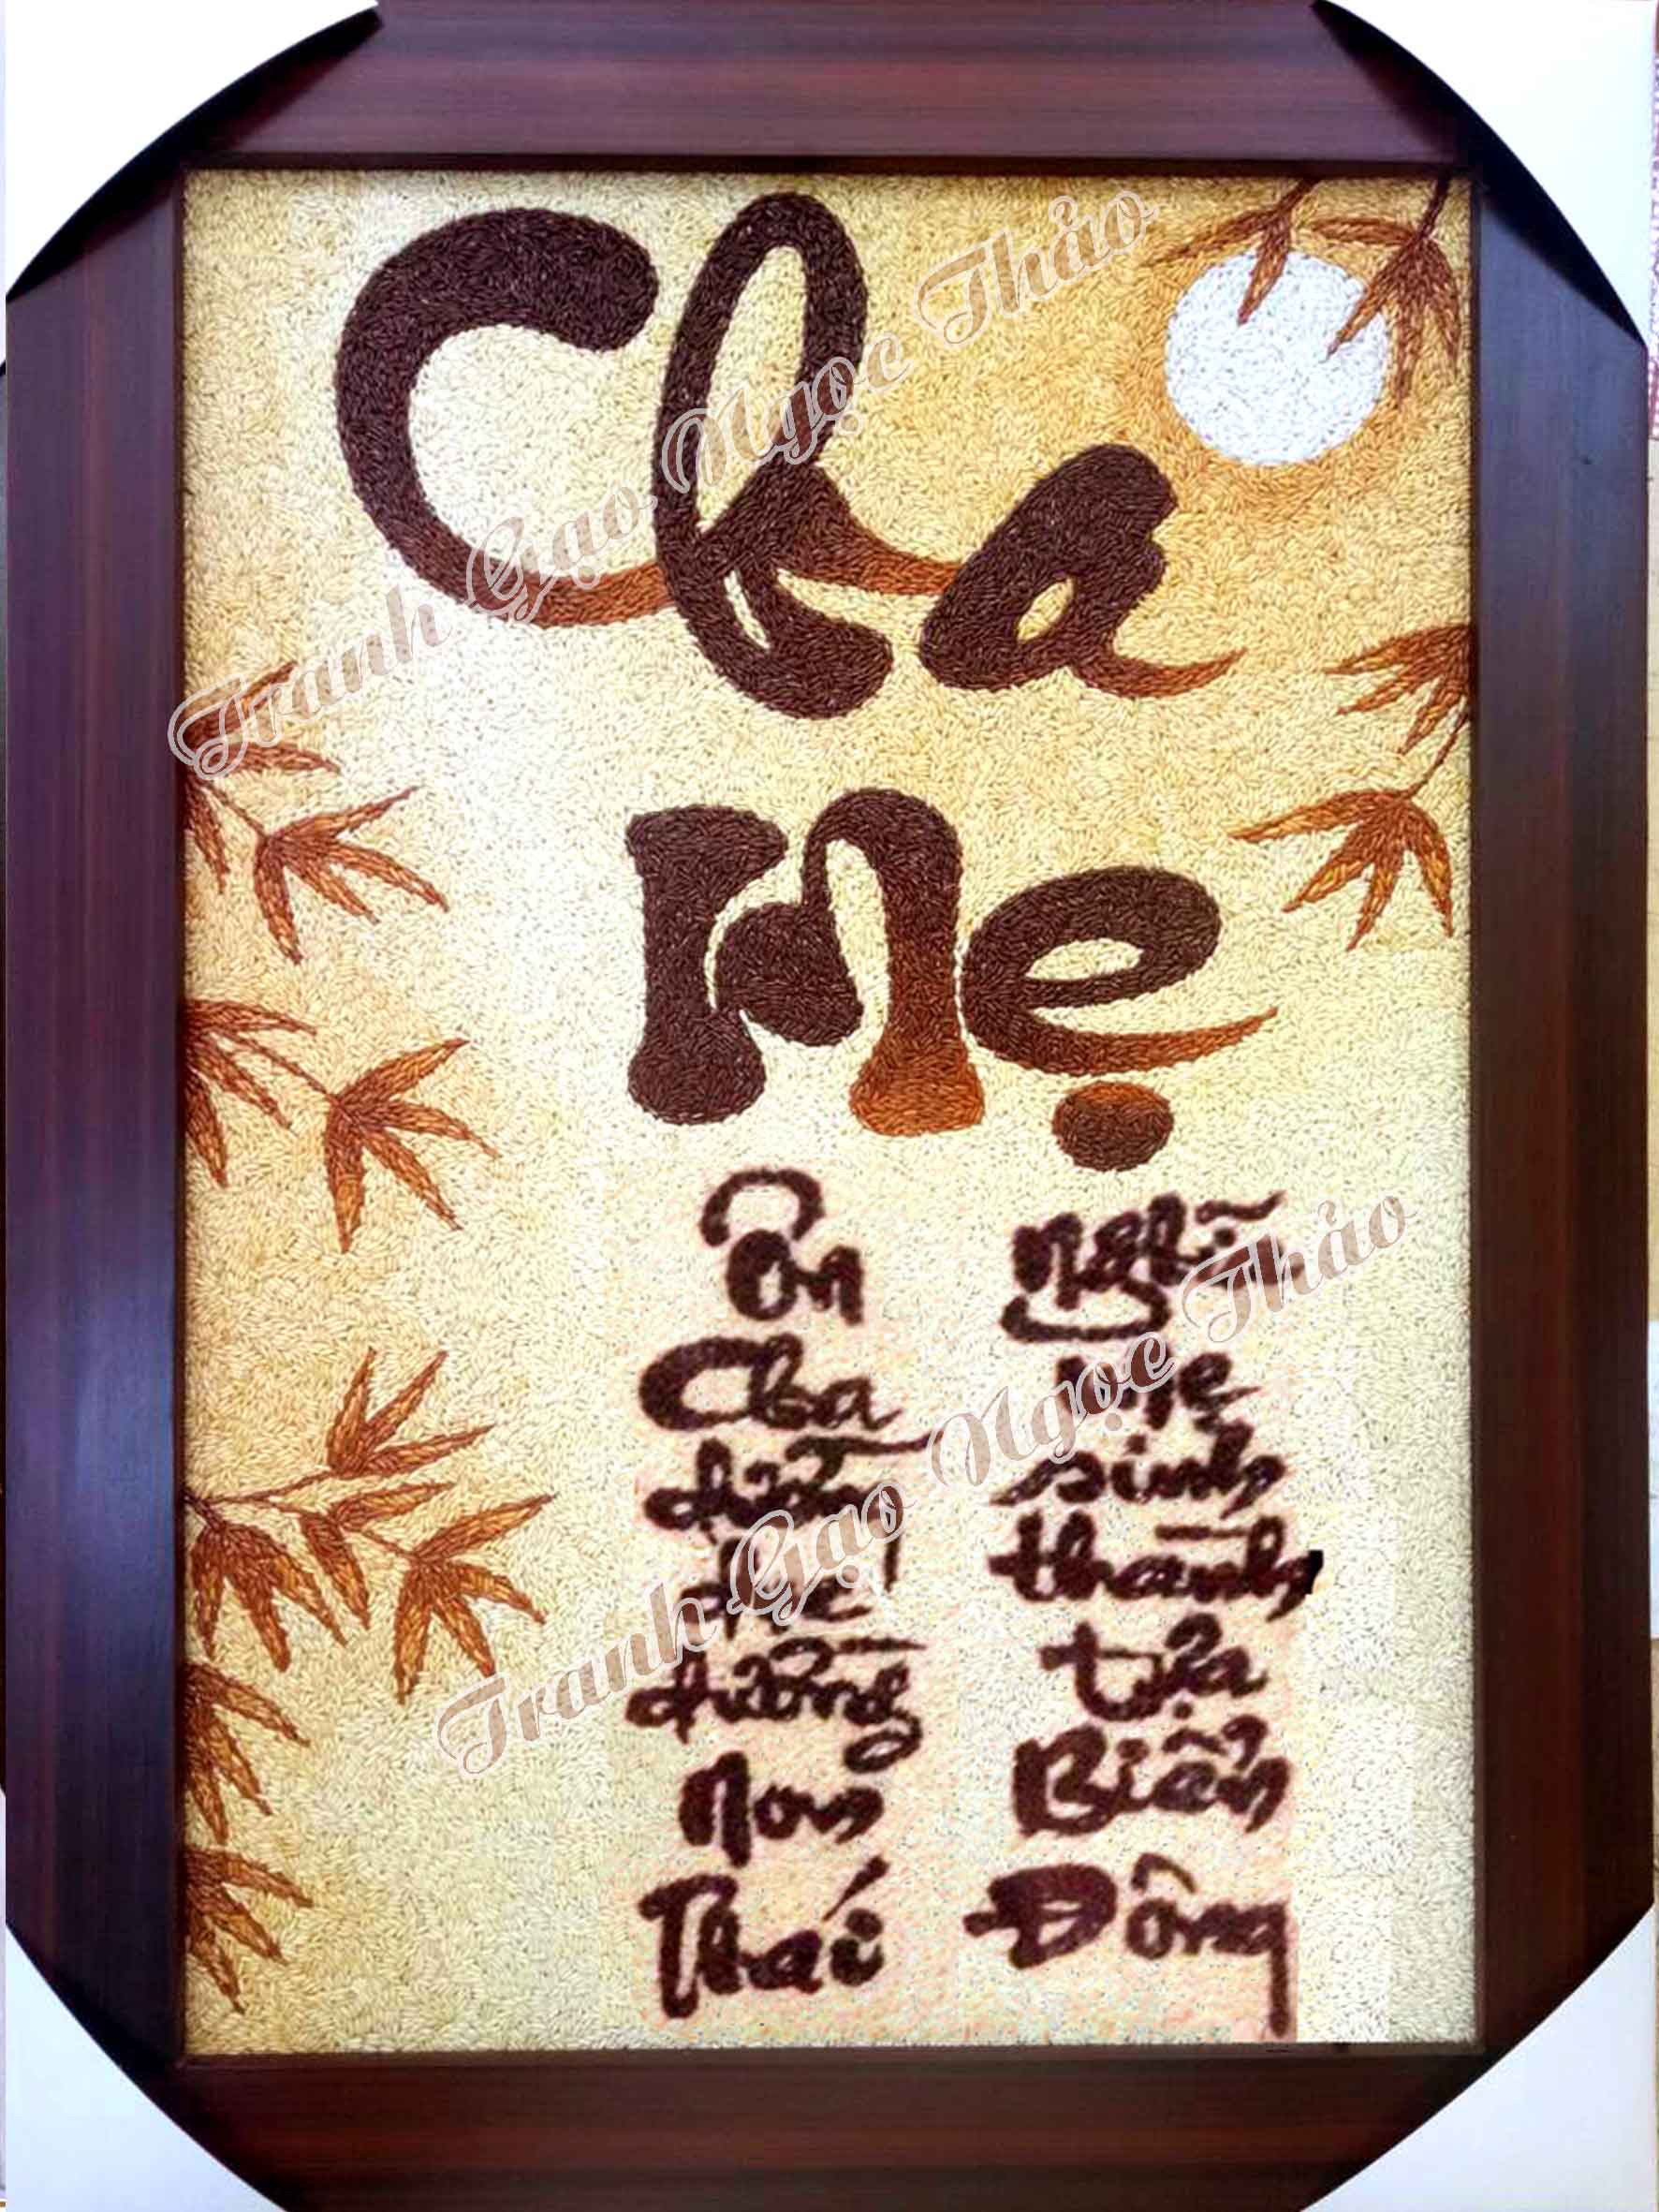 Cha
Mẹ
Ơn
Cha
Non
Thái
Nghĩa
Mẹ
sinh
thành
tựa
Biển
Đông
Tranh Gạo Ngọc Thảo
Tranh Gạo Ngọc Thảo